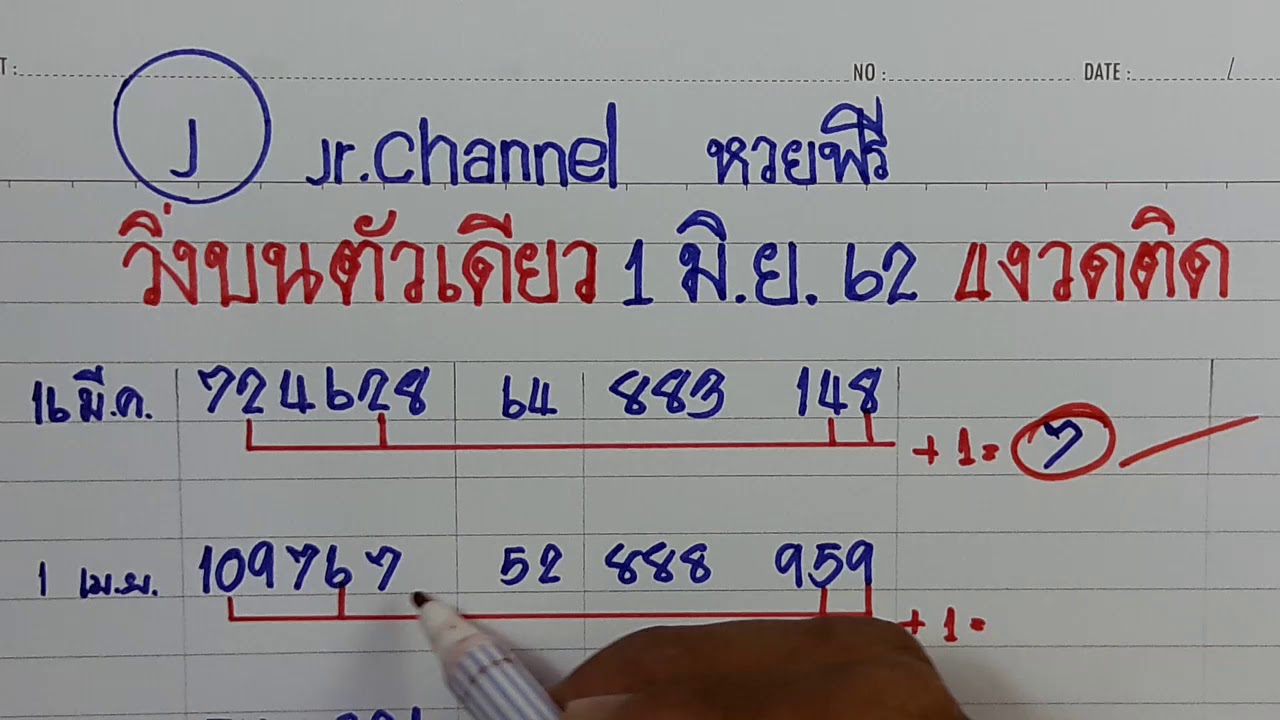 T : NO : DATE : /
J Jr.Channel หวยฟรี
วิ่งบนตัวเดียว 1 มิ.ย. 62 4งวดติด
16 มี.ค. 724628 64 883 148
+ 1 = 7
1 เม.ย. 109767 52 888 959
+ 1 =